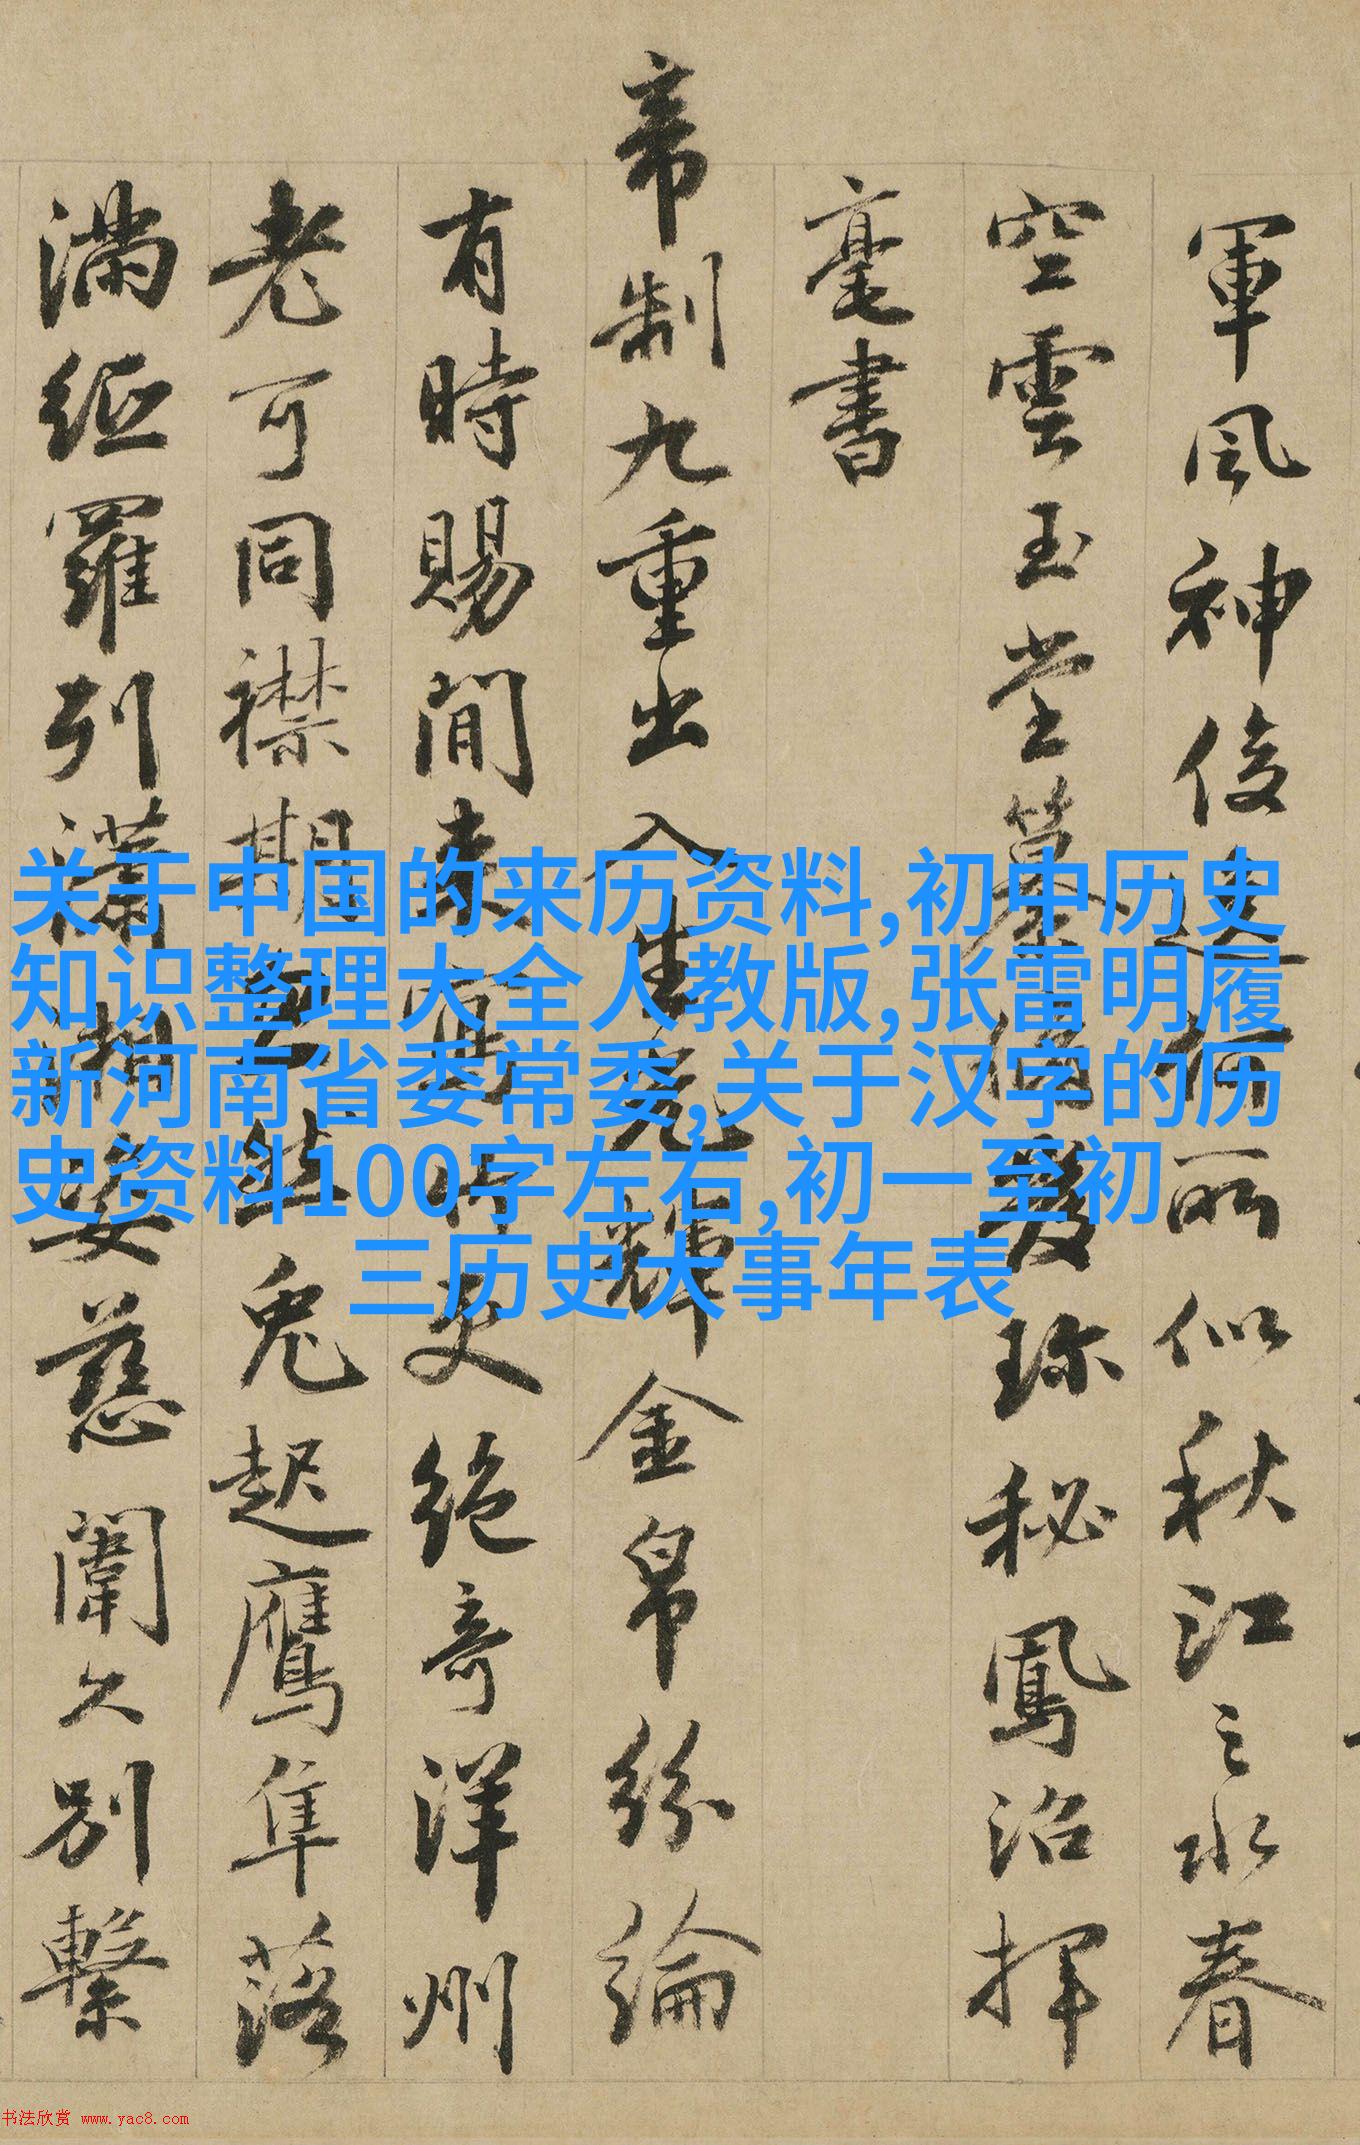 軍風神俊邁所似秋江之水春
空雲玉堂珍秘鳳沼揮
毫書
帝制九重出入生光輝金帛紛綸
有時賜閒来寫竹更絕奇洋州
老可同襟期然兔起鷹隼落
滿羅列瀟湘姿慈闈久別繫
关于中国的来历资料,初中历史
知识整理大全人教版,张雷明履
新河南省委常委,关于汉字的历
史资料100字左右,初一至初
三历史大事年表
书法欣赏 www.yac8.com